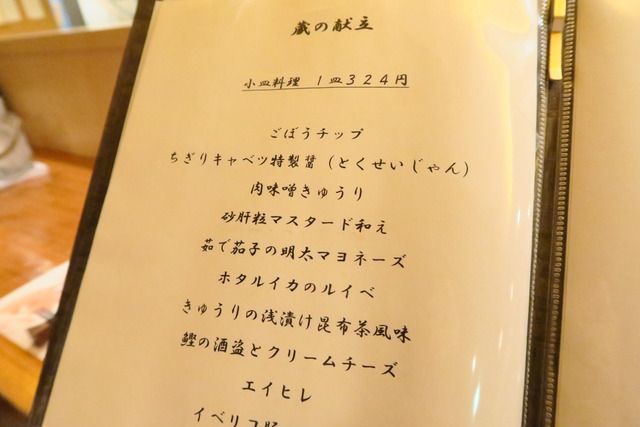 蔵の献立
小皿料理 1皿324円
ごぼうチップ
ちぎりキャベツ特製醤(とくせいじゃん)
肉味噌きゅうり
砂肝粒マスタード和え
茹で茄子の明太マヨネーズ
ホタルイカのルイベ
きゅうりの浅漬け昆布茶風味
鰹の酒盗とクリームチーズ
エイヒレ
イベリコ豚